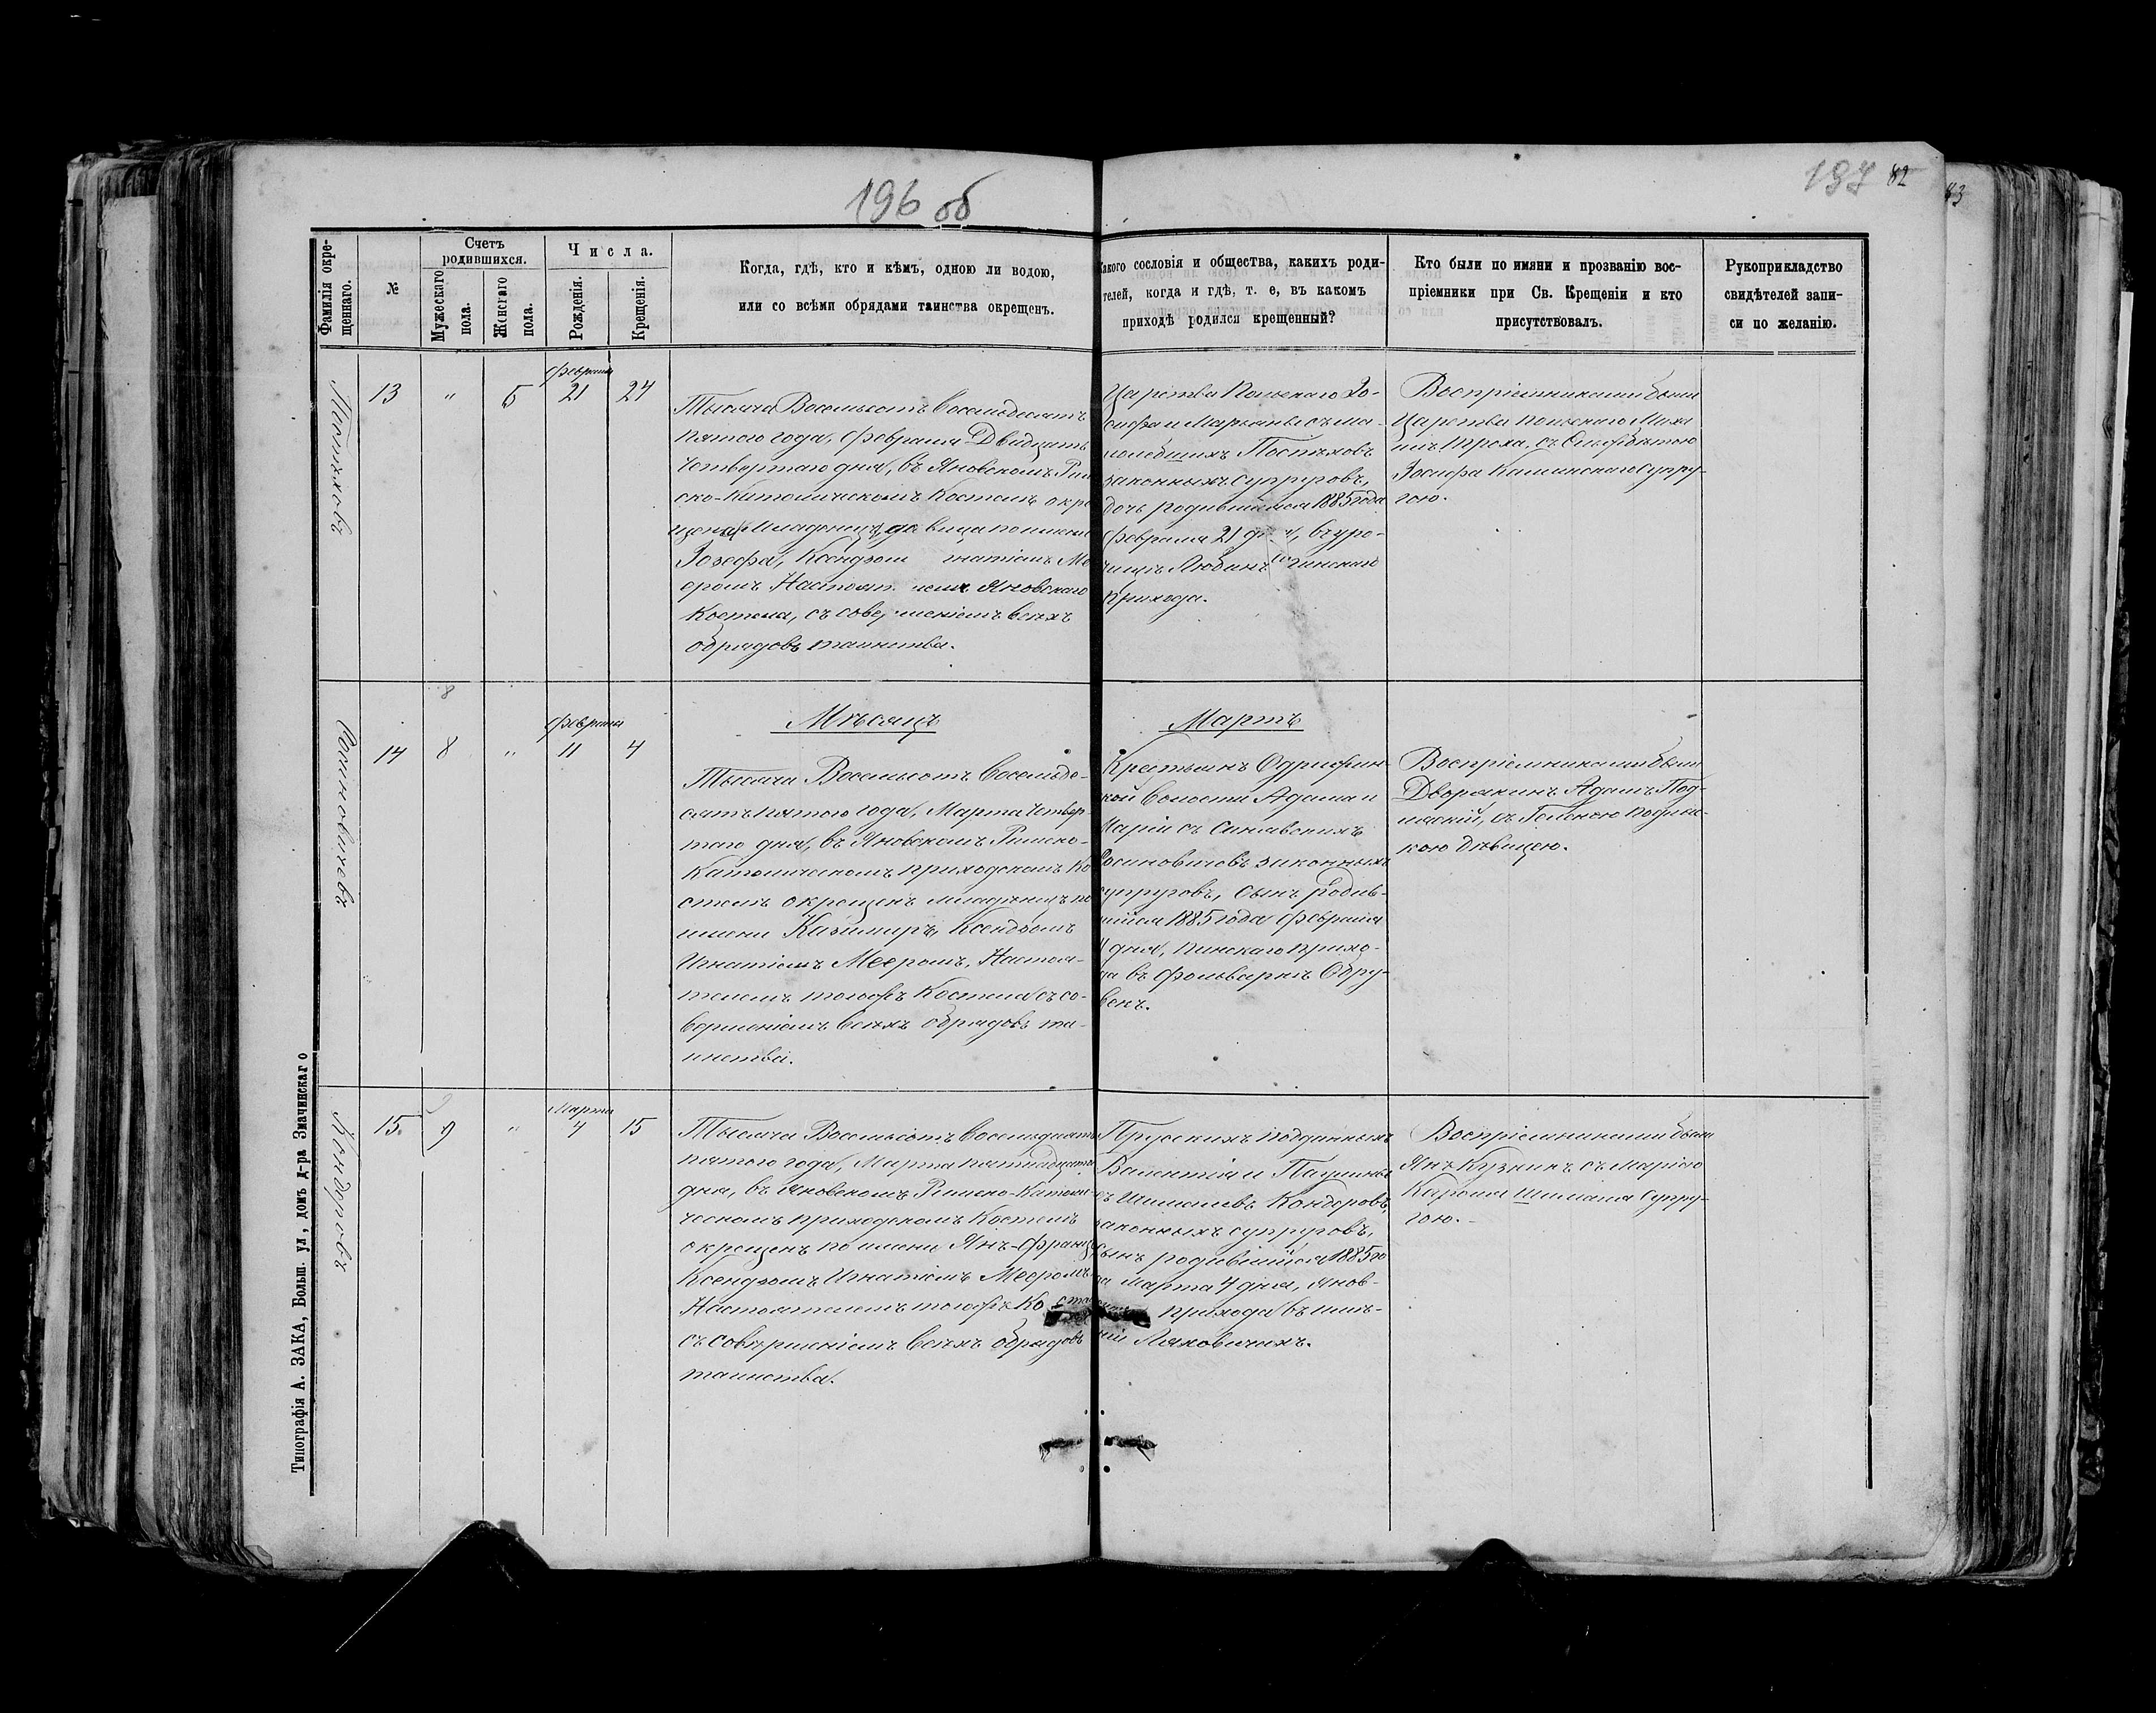 196 об
197 82
83
Фамилія окре-
щеннаго.
№
Счетъ
родившихся.
Мужескаго
пола.
Женскаго
пола.
Числа.
Рожденія.
Крещенія.
Когда, гдѣ, кто и кѣмъ, одною ли водою,
или со всѣми обрядами таинства окрещенъ.
Какого сословія и общества, какихъ роди-
телей, когда и гдѣ, т. е, въ какомъ
приходѣ родился крещенный?
Кто были по имяни и прозванію вос-
пріемники при Св. Крещеніи и кто
присутствовалъ.
Рукоприкладство
свидѣтелей запи-
си по желанію.
13 " 5
Февраля
21 24
Тысяча Восемьсотъ восемьдесятъ
пятого года, Февраля Двадцать
Четвертаго дня, въ Яновскомъ Рим
ско-Католическомъ Костелѣ окре
щена Младенецъ, девица по имени
Іозефа, Ксендзом натіемъ Ме
еромъ Настоят. лемъ Яновскаго
Костела, съ сове, шеніемъ всѣхъ
обрядовъ таинства.
Царства Польскаго Іо-
сифа и Марьяны съ Ма-
Постѣховъ
законныхъ супруговъ,
дочь родившаяся 1885 года
Февраля 21 д. я, въ уро-
чищѣ Любань
прихода.
Воспріемниками были
Царства польскаго Миха
илъ Троха, съ Ельжбѣтою
Іосифа Калинскаго супру-
гою.
Мѣсяцъ Мартъ
8
14 8 "
Февраля
11 4
Тысяча Восемьсотъ восемьде-
сятъ пятого года, Марта Четвер-
того дня, въ Яновскомъ Римско-
Католическомъ приходскомъ Ко
стелѣ окрещенъ младенецъ по
имени Казимиръ, Ксендзомъ
Игнатіемъ Мееромъ, Настоя-
телемъ тогожъ Костела съ со-
вершеніемъ всѣхъ обрядовъ та-
инства.
Крестьянъ Одрижин-
кой волости Адама и
Маріи съ Синявскихъ
законныхъ
супруговъ, сынъ родив-
шійся 1885 года Февраля
11 дня, Пинскаго прихо-
да въ фольваркѣ Одру-
Воспріемниками были
Дворянинъ Адамъ Под-
съ Геленою
кою дѣвицею.
Кондоровъ
15. 9 "
Марта
4 15
Тысяча Восемьсотъ восемьдесятъ
пятого года, Марта пятнадцатаго
дня, въ Яновскомъ Римско-Католи-
ческомъ приходскомъ Костелѣ
окрещенъ по имени Янъ-Франц
Ксендзомъ Игнатіемъ Мееромъ
Настоятелемъ тогожъ Костела
съ совершеніемъ всѣхъ обрядовъ
таинства.
Прусскихъ подданныхъ
Валентія и Паулины
съ Шималевъ Кондоровъ,
законныхъ супруговъ,
сынъ родившійся 1885 го
да Марта 4 дня, Янов-
прихода въ имѣ-
ніи Ляховичахъ.
Воспріемниками были
Янъ Кузникъ съ Маріею
Кароля Шимала супру-
гою.
Типографія А. ЗАКА, Больш. ул, домъ д-ра Змачинскаго